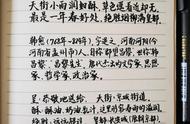 天街小雨润如酥,草色遥看近却无。
最是一年春好处,绝胜烟柳满皇都。
韩愈(768—824年),字退之,河南河阳(今
河南省孟州市)人,自称"郡望昌黎",世称"韩
昌黎"、"昌黎先生"。唐代杰出的文学家、思想
家、哲学家、政治家。
呈:恭敬地送给 天街:京城街道
酥:酥油,奶油乳汁,这里形容春雨的滋润